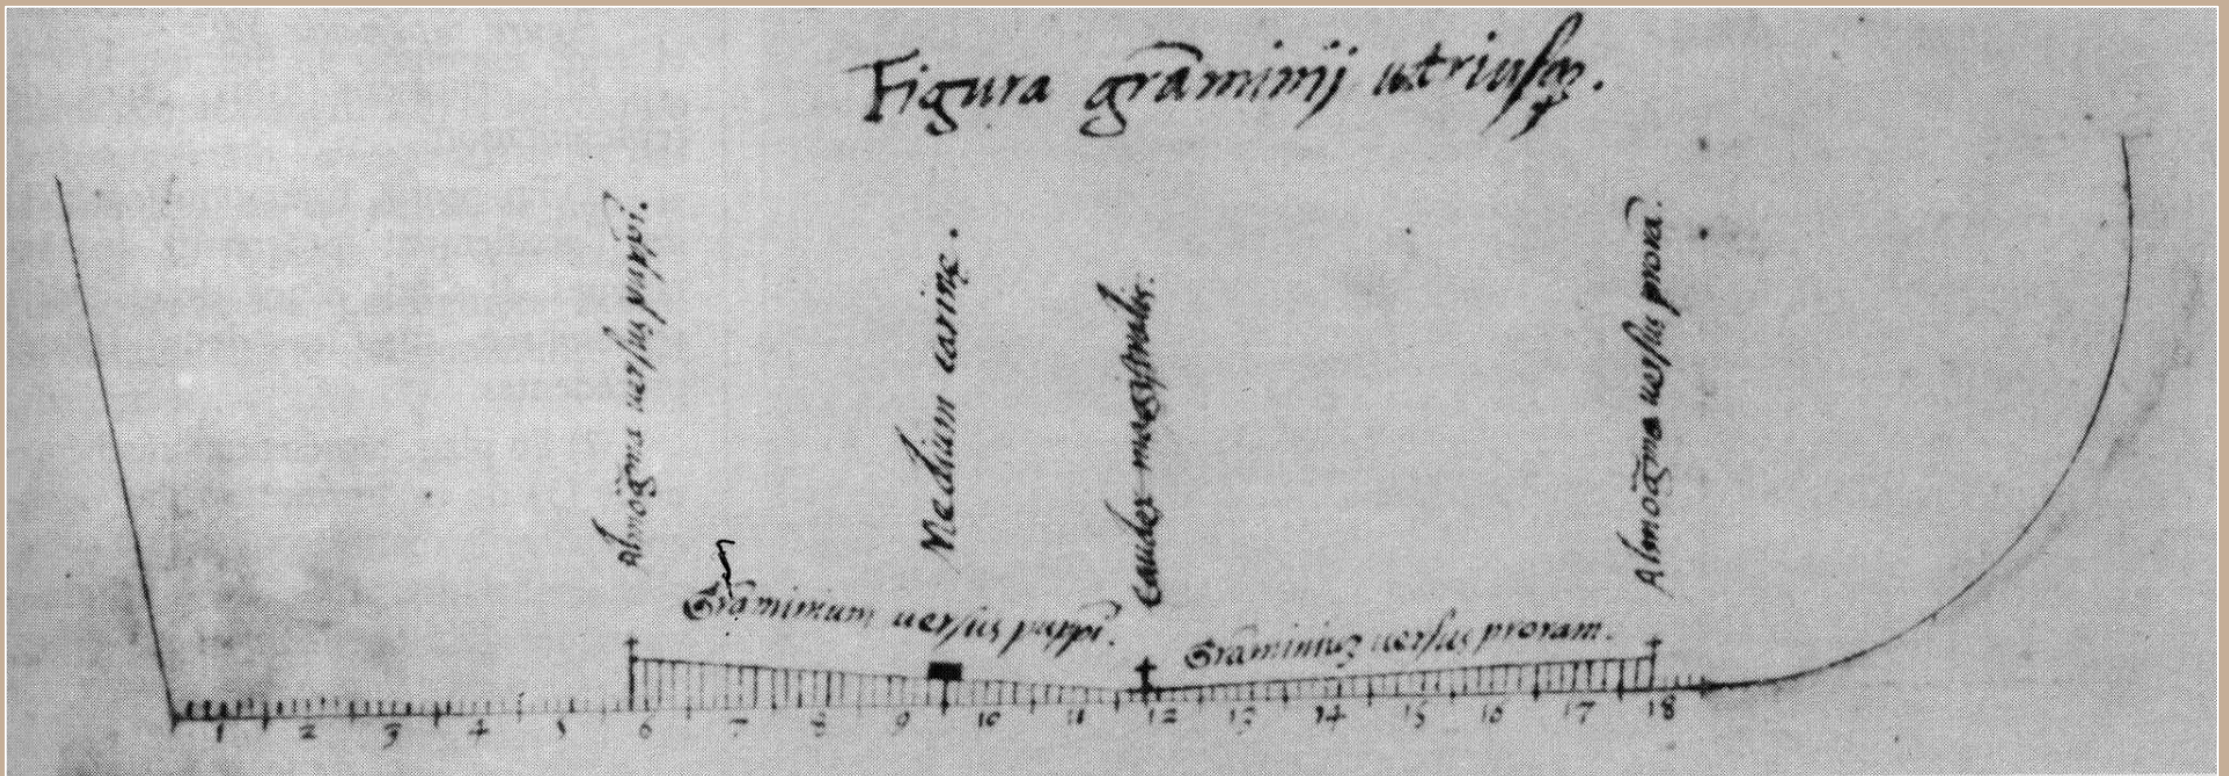 Figura gramimij utriusq.
Almogma uersus puppi.
Medium carinę.
Caudex magistralis.
Almogma uersus prora.
Gramimium uersus puppi.
Gramimiuz uersus proram.
1 2 3 4 5 6 7 8 9 10 11 12 13 14 15 16 17 18